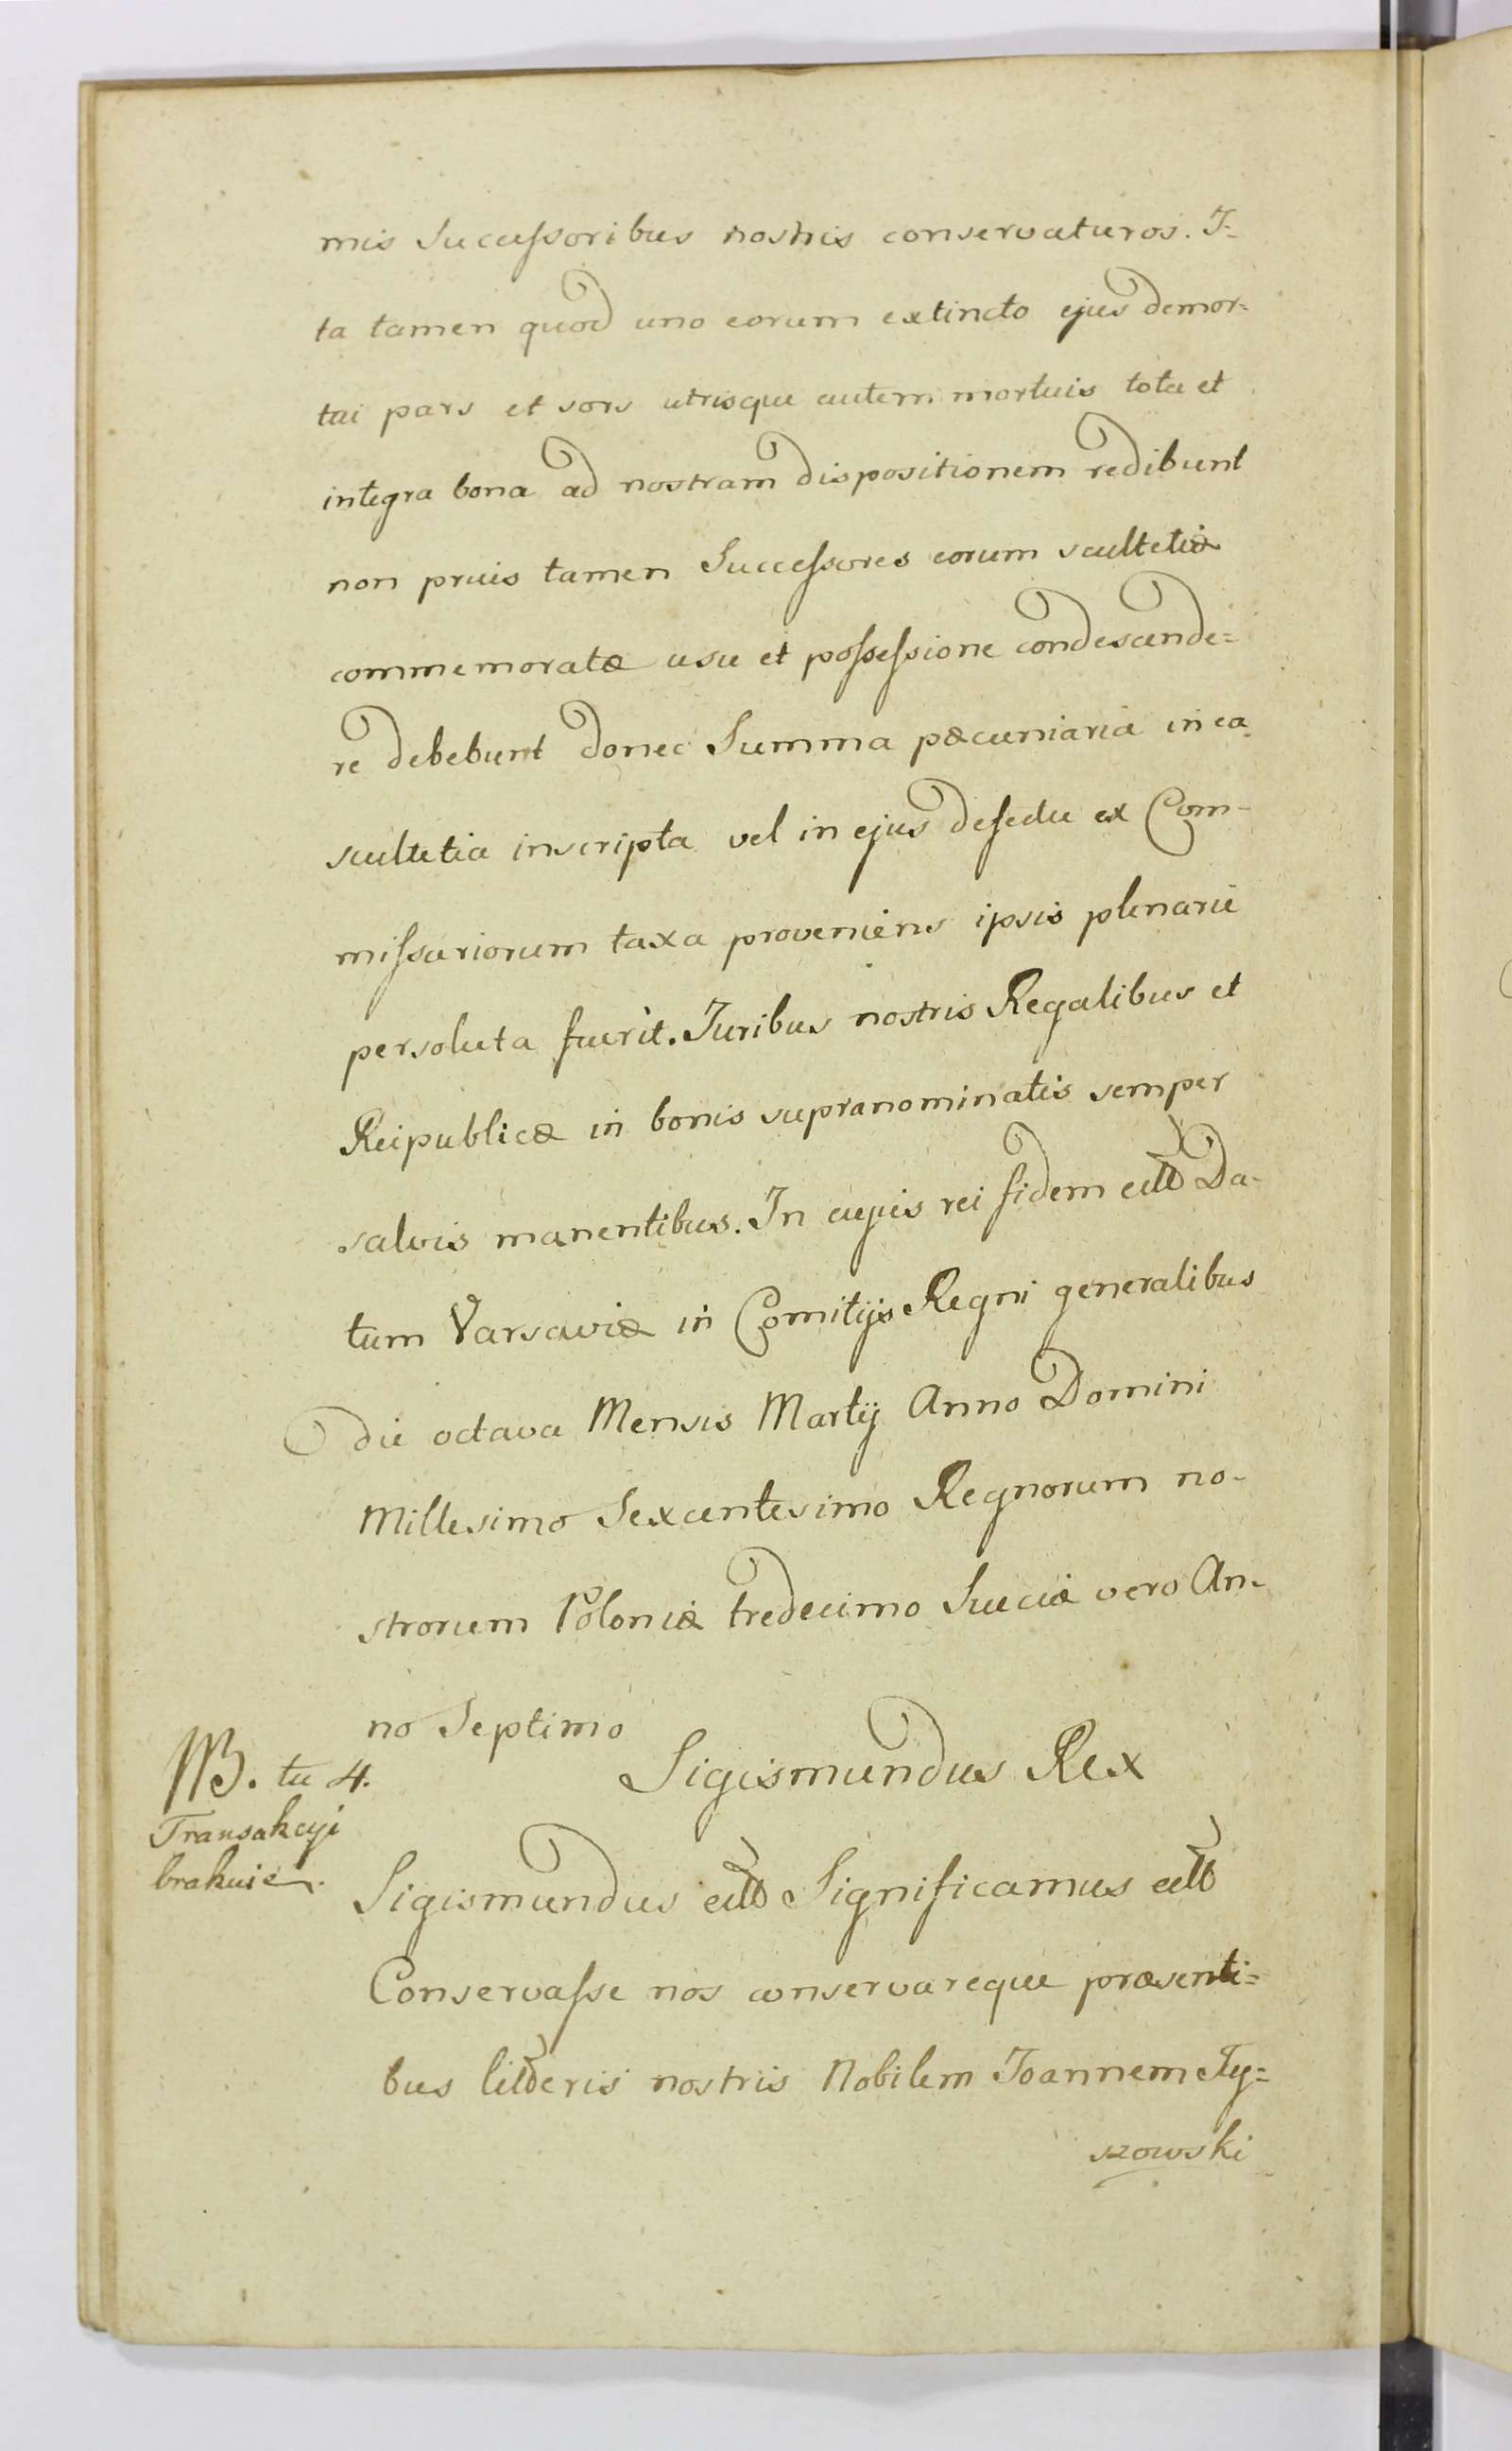 mis Successoribus nostris conservaturos. I-
ta tamen quod uno eorum extincto ejus demor-
tui pars et sors utrisque autem mortuis tota et
integra bona ad nostram dispositionem redibunt
non prius tamen Successores eorum scultetiæ
commemoratæ usu et possessione condescende=
re debebunt donec Summa pæcuniaria in ea
scultetia inscripta vel in ejus defectu ex Com-
missariorum taxa proveniens ipsis plenarie
persoluta fuerit. Juribus nostris Regalibus et
Reipublicæ in bonis supranominatis semper
salvis manentibus. In cujus rei fidem ettt Da-
tum Varsaviæ in Comitijs Regni generalibus
die octava Mensis Martij Anno Domini
Millesimo Sexcentesimo Regnorum no-
strorum Poloniæ tredecimo Sueciæ vero An-
no Septimo
Sigismundus Rex
NB. tu 4.
Transakcyi
brakuie.
Sigismundus ettt Significamus ettt
Conservasse nos conservareque præsenti=
bus litteris nostris Nobilem Joannem Ty=
szowski